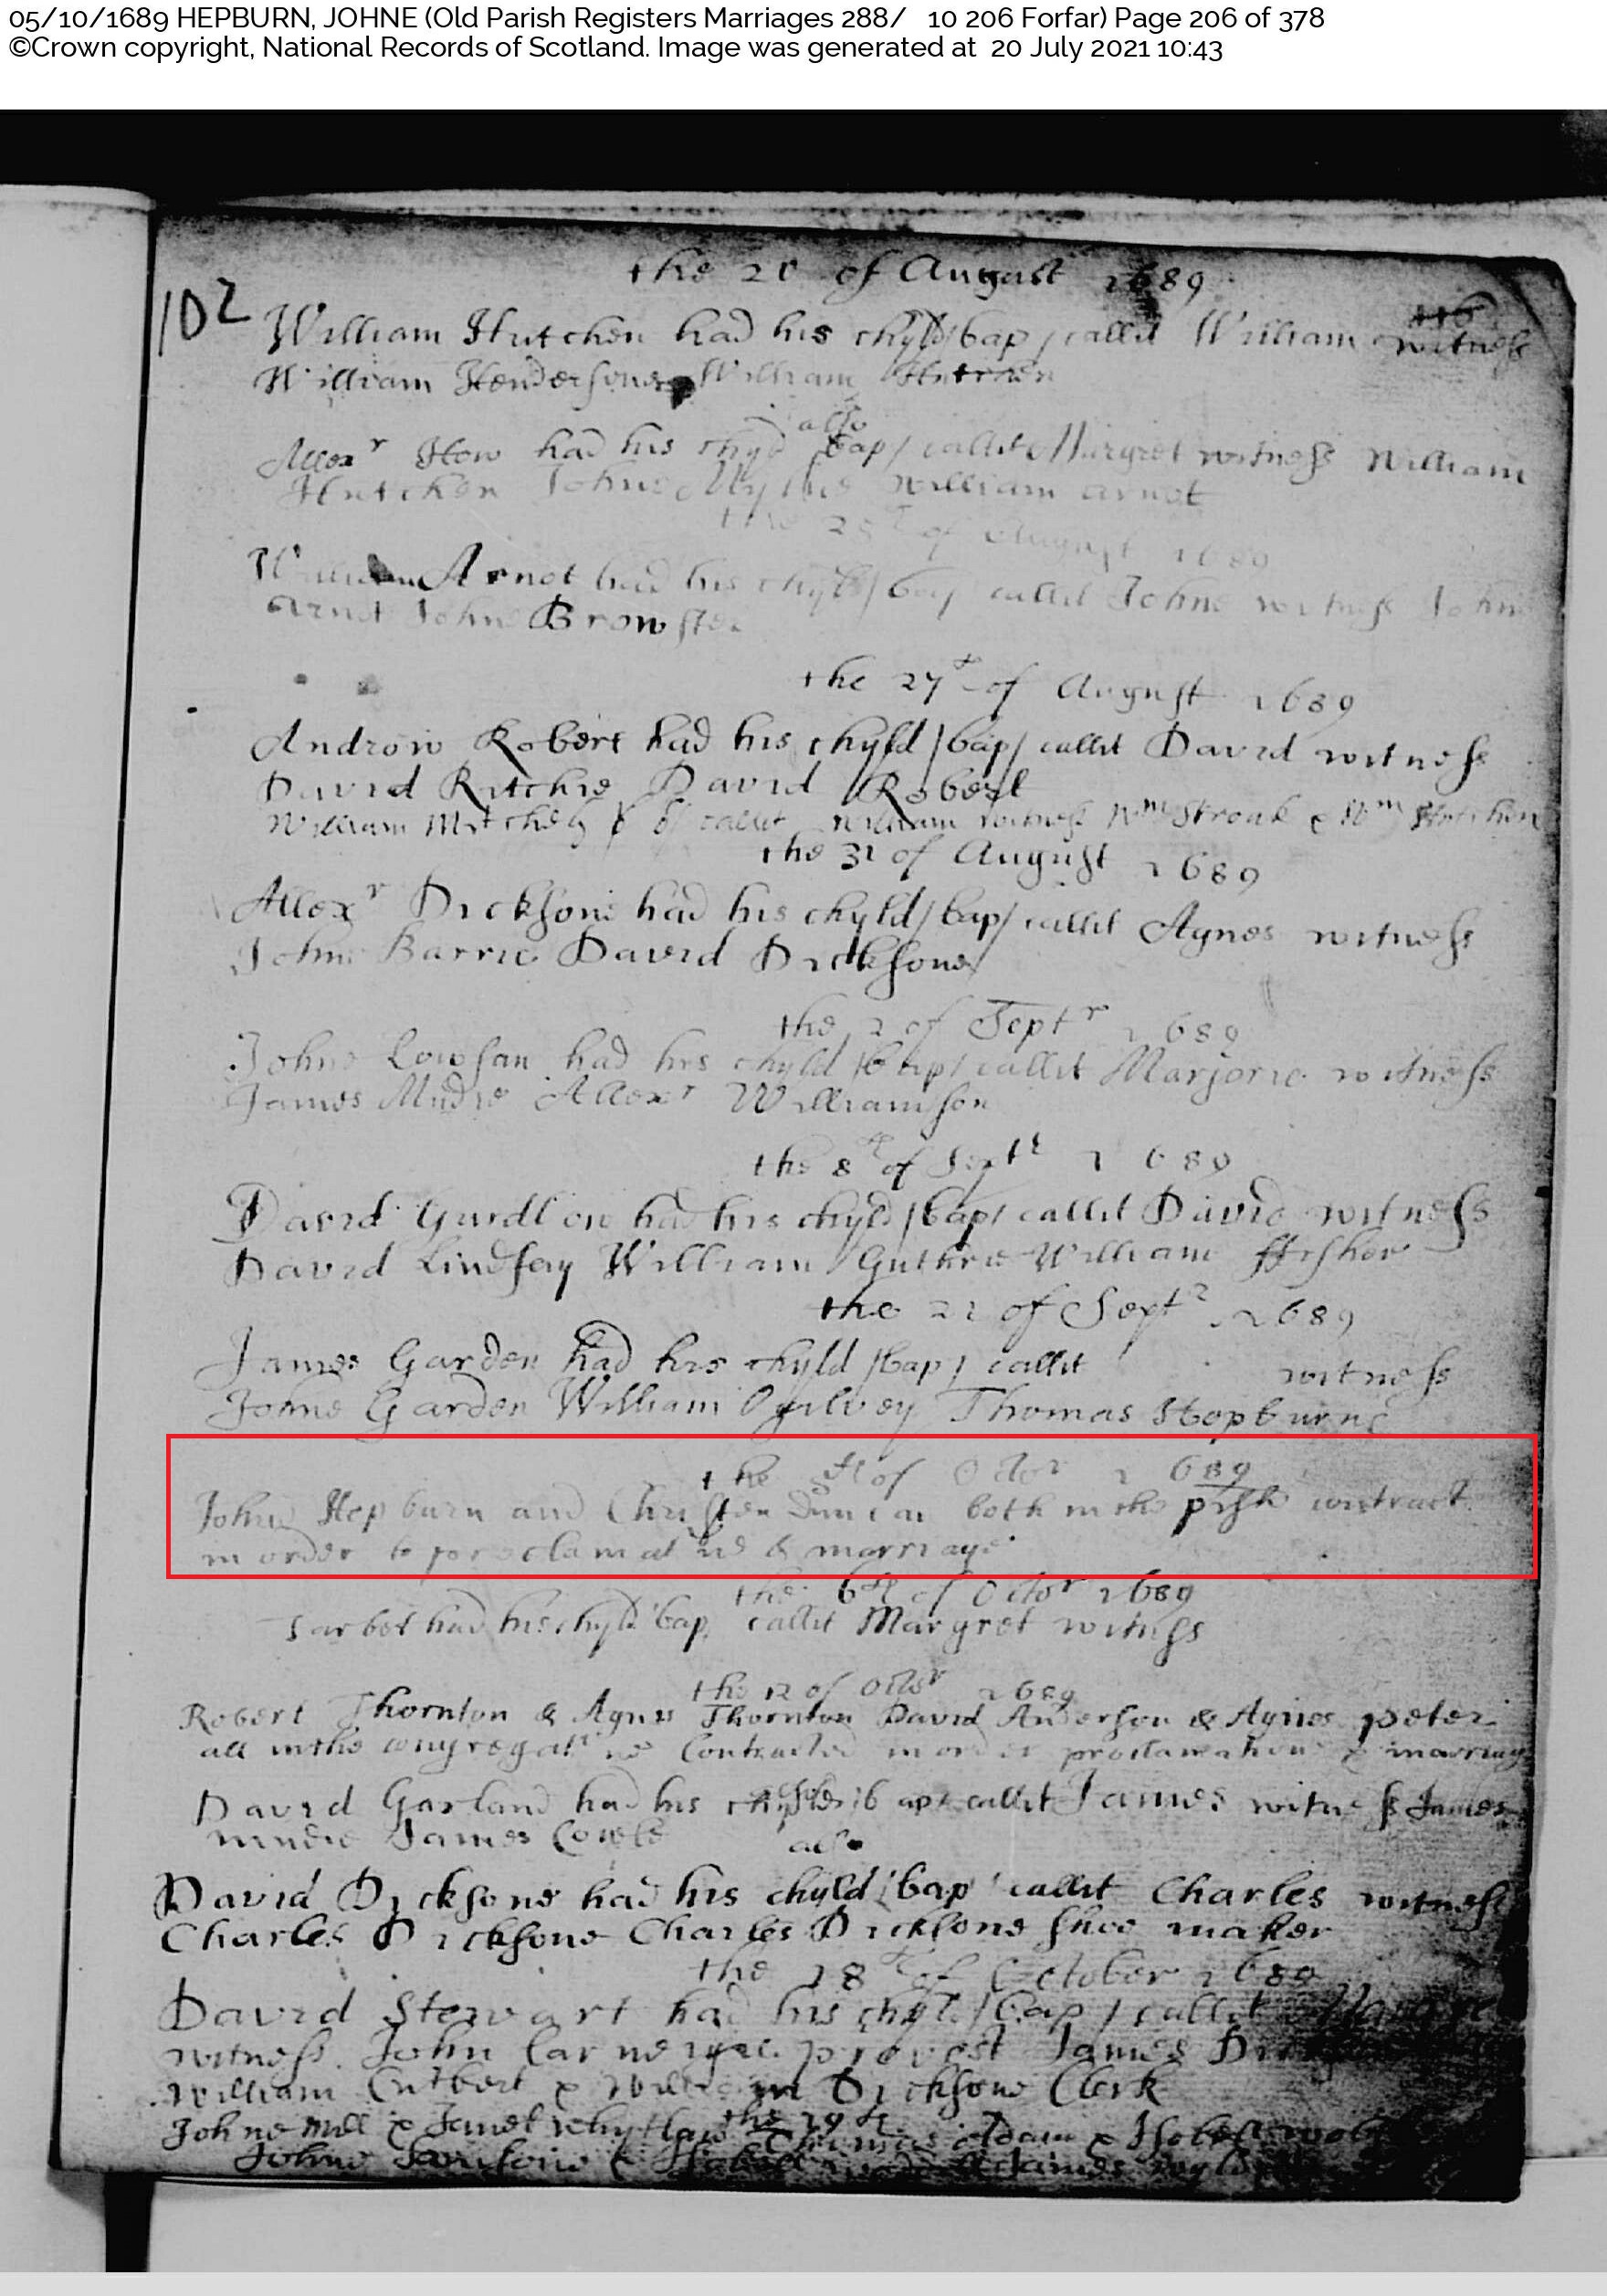 05/10/1689 HEPBURN, JOHNE (Old Parish Registers Marriages 288/ 10 206 Forfar) Page 206 of 378
©Crown copyright, National Records of Scotland. Image was generated at 20 July 2021 10:43
the 21 of August 1689
102
William Hutchen had his chyld /bap/ callit William witness
William Hendersone William Hutchen
also
Allexr How had his chyld /bap/ callit Margret witness William
Hutchen Johne William Arnot
the 25 of August 1689
William Arnot had his chyld /bap/ callit Johne witness Johne
Arnot Johne Browster
the 27t of August 1689
Androw Robert had his chyld /bap/ callit David witness
David Ritchie David Robert
William callit William witness Wm Stroak & Wm Hutchen
the 31 of August 1689
Allexr Dicksone had his chyld /bap/ callit Agnes witness
Johne Barrie David Dicksone
the 2 of Septr 1689
Johne Lowsan had his chyld /bap/ callit Marjorie witness
James Mudie Allexr Williamson
the 8t of Septr 1689
David had his chyld /bap/ callit David witness
David Lindsay William Guthrie William ffisher
the 21 of Septr 1689
James Garden had his chyld /bap/ callit witness
Johne Garden William Ogilvey Thomas Hepburne
the 5t of Octor 1689
Johne Hepburn and Christen Duncan both in the prish contract
in order to proclamatne & marriage
the 6t of Octor 1689
Tarbet had his chyld bap callit Margret witness
the 12 of Octor 1689
Robert Thornton & Agnes Thornton David Anderson & Agnes peter
all in the congregatne Contracted in order proclamatione & marriag
David Garland had his chyld bap callit James witness James
mudie James
also
David Dicksone had his chyld /bap/ callit Charles witness
Charles Dicksone Charles Dicksone shoo maker
the 18t of October 1689
David Stewart had his chyld /bap/ callit
witness John provest James
William Cutbert & William Dicksone Clerk
the 19t
Johne mill & Janet whytlaw Thomas Adam &
Johne &